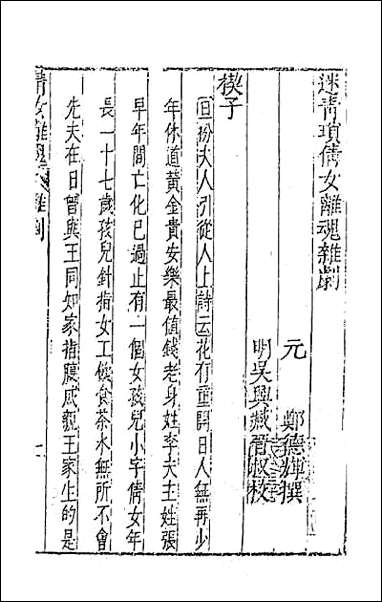 迷青瑣倩女離魂雜劇
元　鄭德輝撰
明吳興臧晉叔校
楔子
旦扮夫人引從人上詩云花有重開日人無再少
年休道黃金貴安樂最值錢老身姓李夫主姓張
早年間亡化已過止有一個女孩兒小字倩女年
長一十七歲孩兒針指女工飲食茶水無所不會
先夫在日曾與王同知家指腹成親王家生的是
倩女離魂　雜劇　一